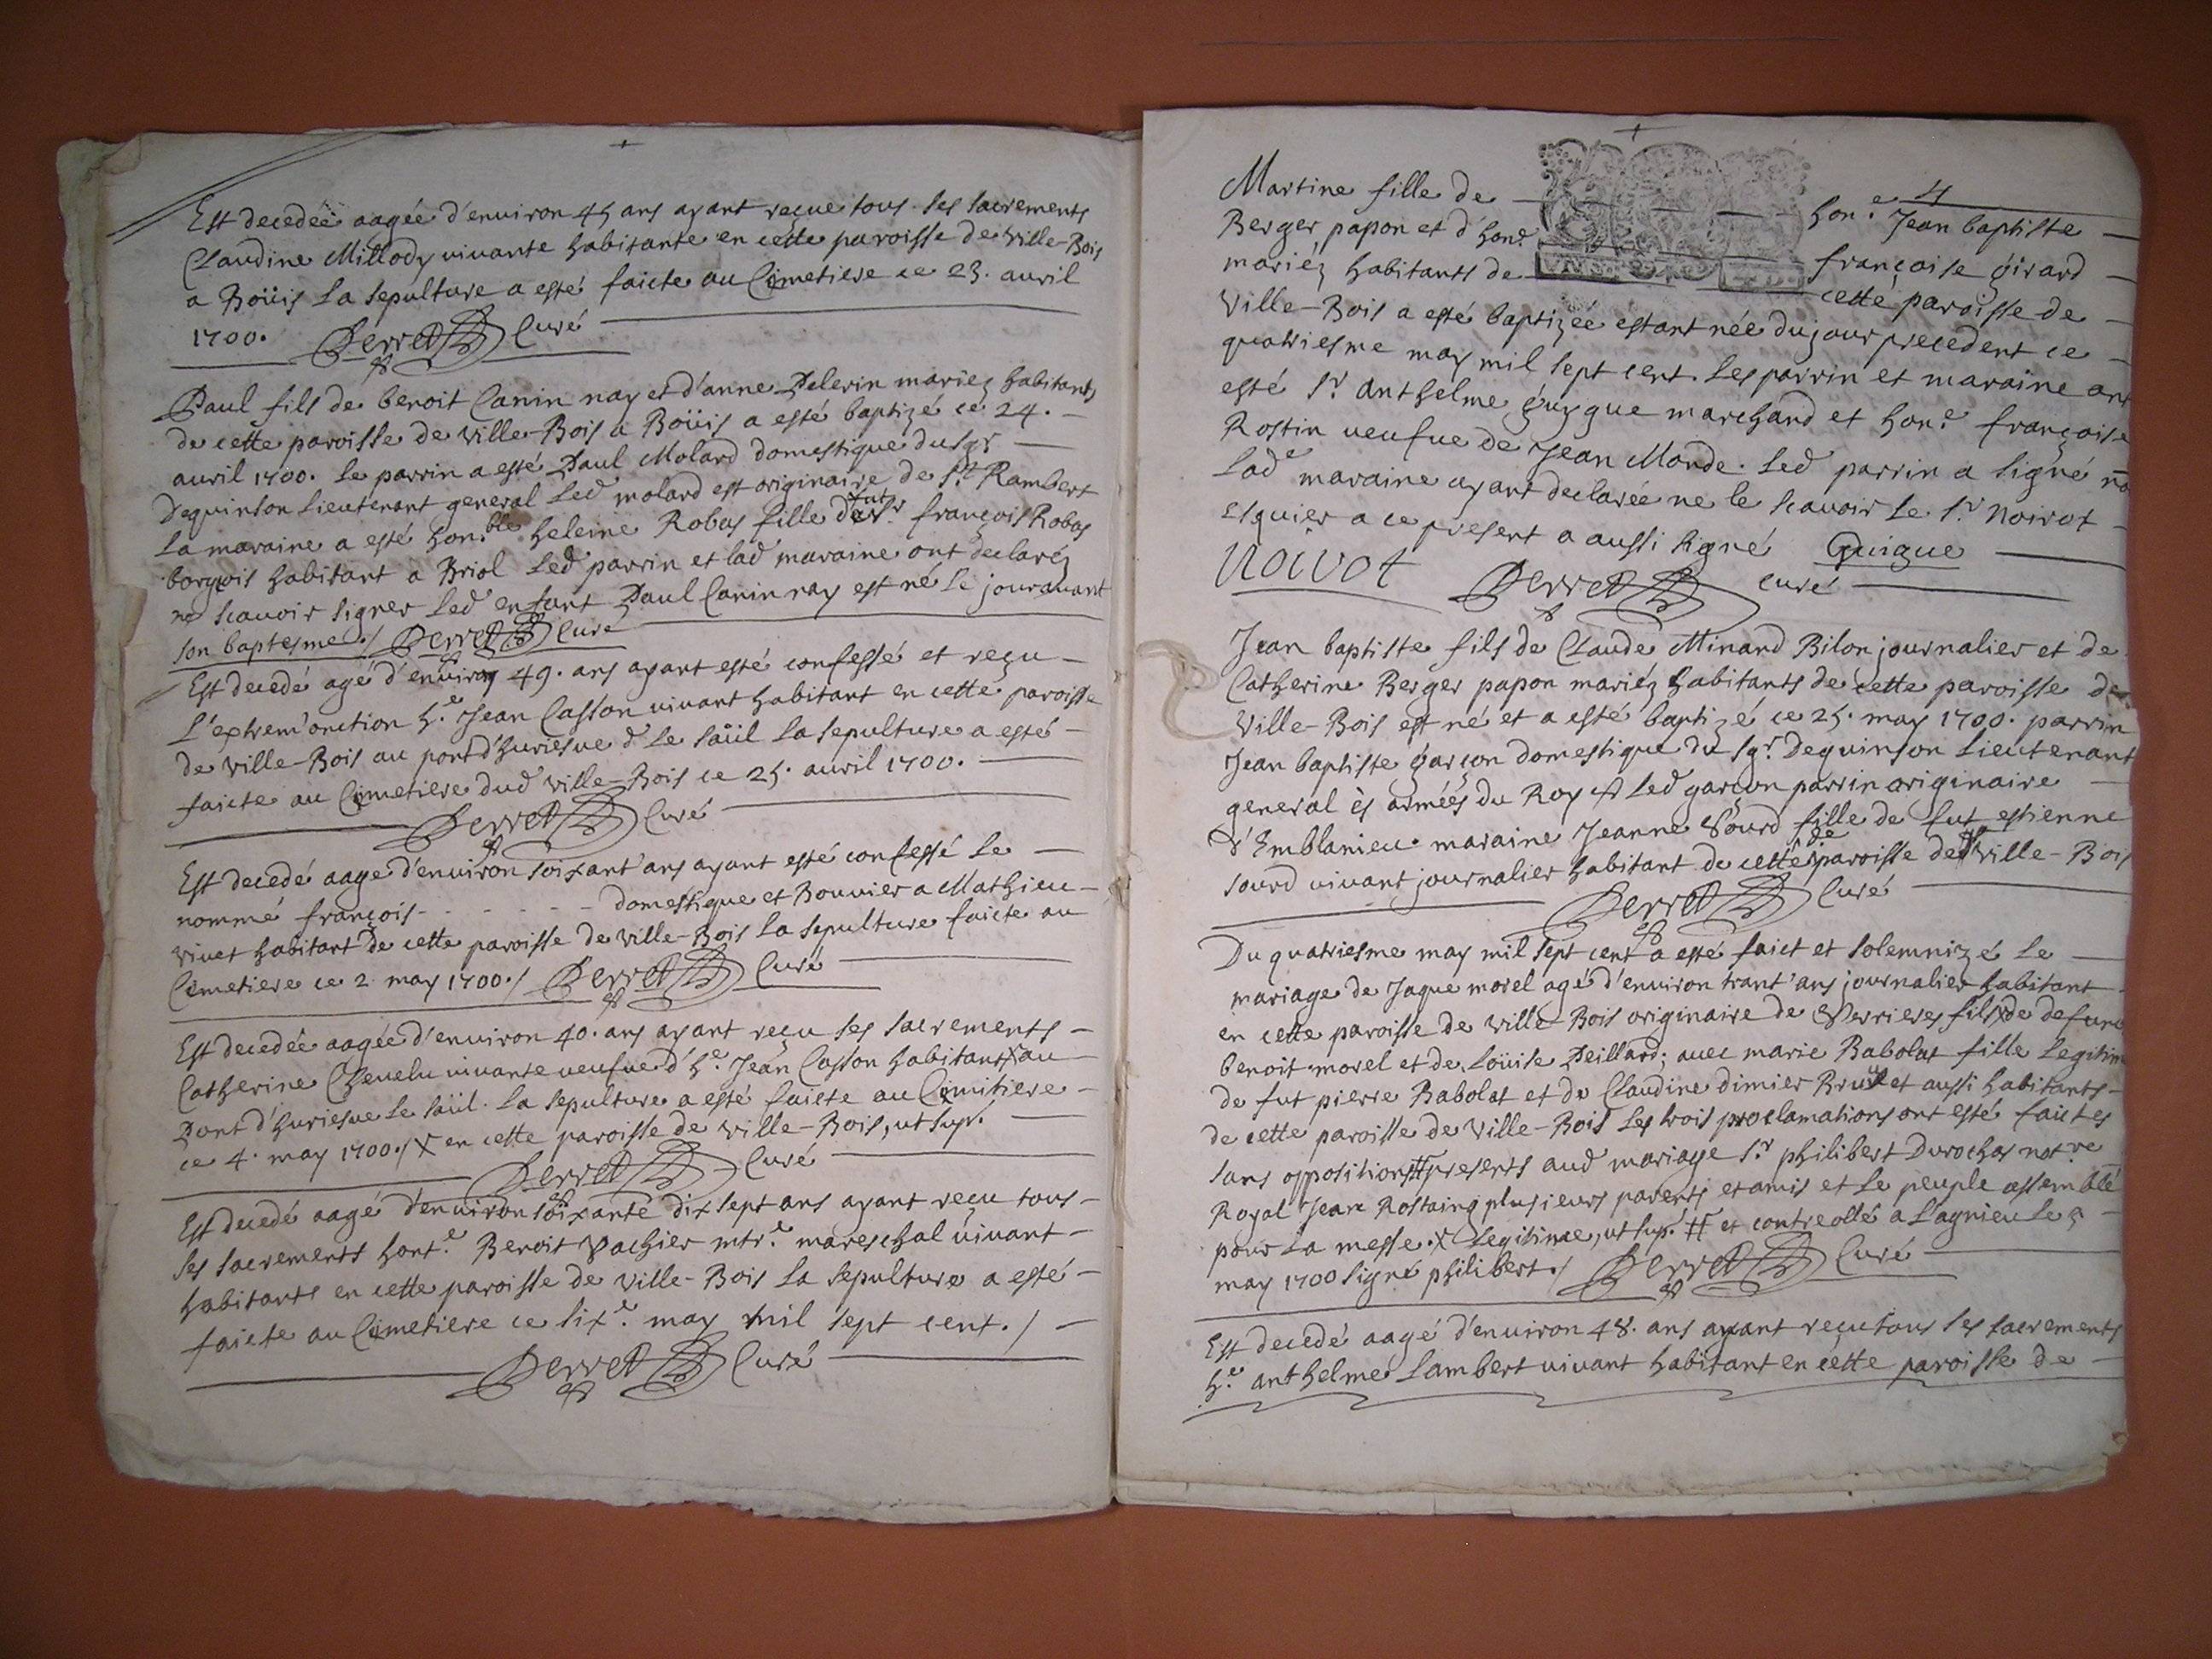 Est decedée aagée d'enuiron 45 ans ayant reçue tous ses sacrements
Claudine Millody uiuante habitante en cette paroisse de Ville-Bois
a Boüis La sepulture a esté faicte au Cimetiere ce 23. auril
1700. Perret Curé
Paul fils de benoit Canin nay et d'anne Pelerin mariez habitants
de cette paroisse de Ville-Bois a Boüis a esté baptizé ce 24.
auril 1700. Le parrin a esté Paul Molard domestique du sgr
Dequinson Lieutenant general Led molard est originaire de St. Rambert
La maraine a esté hon.ble heleine Robas fille de fut Sr. françois Robas
borgeois habitant a Briol Led parrin et lad maraine ont declaréz
ne scauoir signer Led enfant Paul Canin nay est né le jour auant
son baptesme./ Perret Curé
Est decedé agé d'enuiron 49. ans ayant esté confessé et reçu
L'extrem'onction h.e Jean Casson uiuant habitant en cette paroisse
de Ville-Bois au pont d'huriesue d Le saüil La sepulture a esté
faicte au Cimetiere dud Ville-Bois ce 25. auril 1700.
Perret Curé
Est decedé aage d'enuiron soixant'ans ayant esté confessé Le
nommé françois - - - - - domestique et Bouuier a Mathieu
viuet habitant de cette paroisse de Ville-Bois La sepulture faicte au
Cimetiere ce 2 may 1700./ Perret Curé
Est decedée aagée d'enuiron 40. ans ayant reçu ses sacrements
Catherine Cheuelu uiuante ueufue d'h.e Jean Casson habitant X au
Pont d'huriesue Le saüil. La sepulture a esté faicte au Cimitiere
ce 4. may 1700./ X en cette paroisse de Ville-Bois, ut sup.
Perret Curé
Est decedé aagé d'enuiron soixante dix sept ans ayant reçu tous
ses sacrements hont.e Benoit Vachier mtr.e mareschal uiuant
habitant en cette paroisse de Ville-Bois La sepulture a esté
faicte au Cimetiere ce six.e may mil sept cent./
Perret Curé
4
Martine fille de hon.e Jean baptiste
Berger papon et d'hon.e françoise girard
mariéz habitants de cette paroisse de
Ville-Bois a esté baptizée estant née du jour precedent ce
quatriesme may mil sept cent. Les parrin et maraine ont
esté Sr. Anthelme guygue marchand et hon.e françoise
Rostin ueufue de Jean Monde. Led parrin a signé no
Lad.e maraine ayant declarée ne le scauoir Le Sr. Noirot
esquier a ce present a aussi signé Guigue
Noirot Perret curé
Jean baptiste fils de Claude Minard Bilon journalier et de
Catherine Berger papon mariéz habitants de cette paroisse de
Ville-Bois est né et a esté baptizé ce 25. may 1700. parrin
Jean baptiste garçon domestique du sgr. Dequinson Lieutenant
general ès armées du Roy Led garçon parrin originaire
d'Emblanieu. maraine Jeanne Sourd fille de fut estienne
sourd uiuant journalier habitant de cette paroisse de Ville-Bois
Perret Curé
Du quatriesme may mil sept cent a esté faict et solemnizé Le
mariage de Jaque morel agé d'enuiron trant'ans journalier habitant
en cette paroisse de Ville-Bois originaire de Verrieres fils X de defunc
benoit morel et de Loüise Peillard; auec marie Rabolat fille Legitim
de fut pierre Rabolat et de Claudine dimier et aussi habitants
de cette paroisse de Ville-Bois Les trois proclamations ont esté faictes
sans oppositions # presents aud mariage Sr. philibert Durochas not.re
Royal Jean Rostaing plusieurs parents et amis et Le peuple assemblé
pour La messe. X Legitime, ut sup. # et controollé a Lagnieu Le 2
may 1700 signé philibert./ Perret Curé
Est decedé aagé d'enuiron 48. ans ayant reçu tous ses sacrements
h.e anthelme Lambert uiuant habitant en cette paroisse de